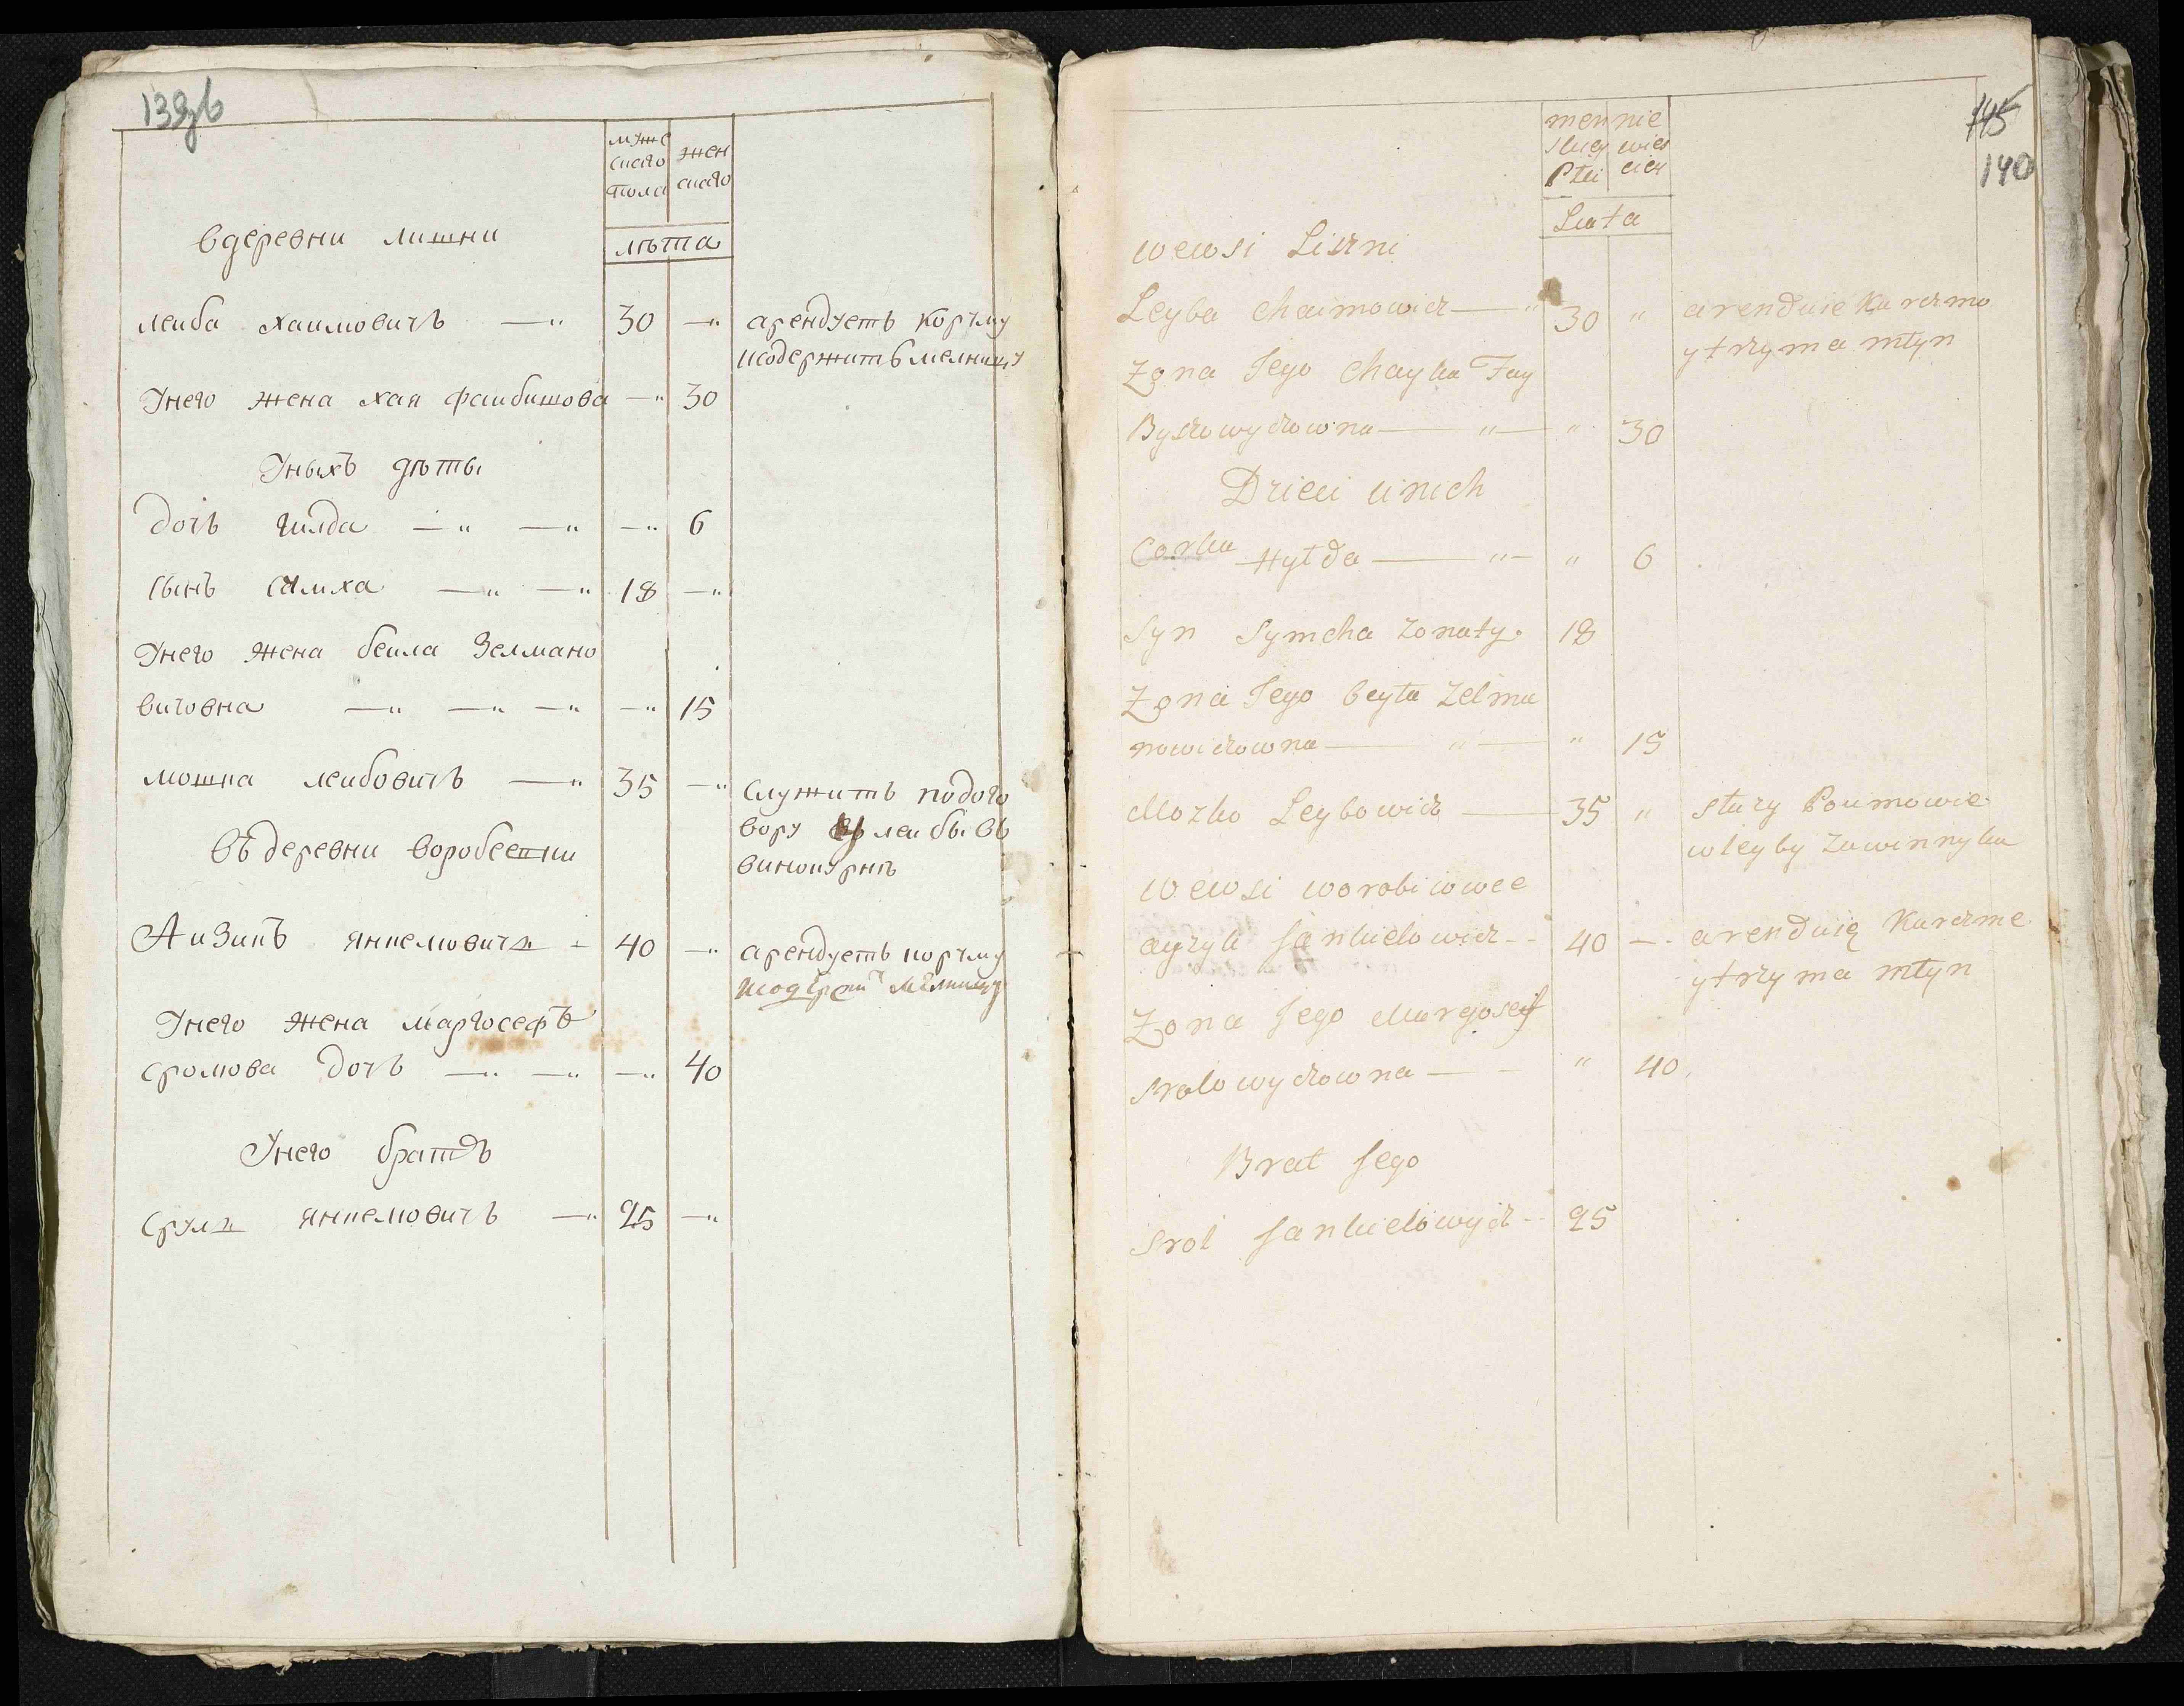 139об
муже
скаго
пола
жен
скаго
лѣта
вдеревни лишни
леиба хаимовичъ —〃 30 —〃 арендуетъ корчму
исодержитъ мелницу
Унего жена хая фаибишова —〃 30
Уныхъ дѣты
дочь гилда —〃 —〃 —〃 6
сынъ симха —〃 —〃 18 —〃
Унего жена беила Зелмано
вичовна —〃 —〃 —〃 —〃 15
мошка леибовичъ —〃 35 —〃 служитъ подого
вору леибы въ
винокурнѣ
въдеревни воробеевки
Аизикъ янкелювичъ — 40 —〃 арендуетъ корчму
мелницу
Унего жена маргосефъ
сролюва дочъ —〃 —〃 —〃 40
Унего братъ
сруль янкелювичъ —〃 25 —〃
145
140
men nie
skiey wies
Płci ciey
Lata
wewsi Liszni
Leyba Chaimowicz —〃 30 〃 arenduie Karczmo
ytrzyma młyn
Zona Jego Chayka Fay
Byszowyczowna —〃— 〃 30
Dzieci unich
Corka Hyłda —〃— 〃 6
Syn Symcha Zonaty. 18
Zona Jego beyła Zelma
nowiczowna —〃— 〃 15
Moszko Leybowicz — 35 〃 służy Poumowie
wleyby Zawinnyka
wewsi worobiowce
ayzyk Jankielowicz -- 40 — arenduię Karczme
ytrzyma młyn
Zona Jego Margosejf
srolowyczowna — - 〃 40
Brat Jego
Srol Jankielowycz -- 25